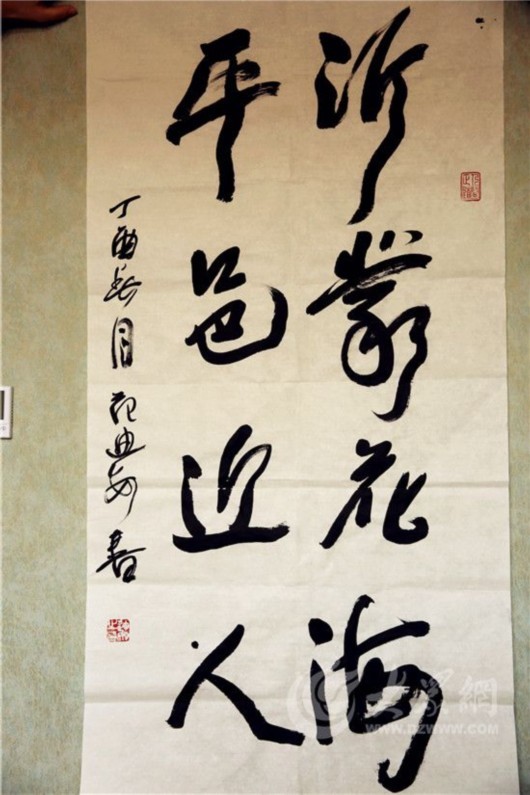 沂蒙花海
平邑近人
丁酉春月 范迪安書
大众網
www.dzwww.com